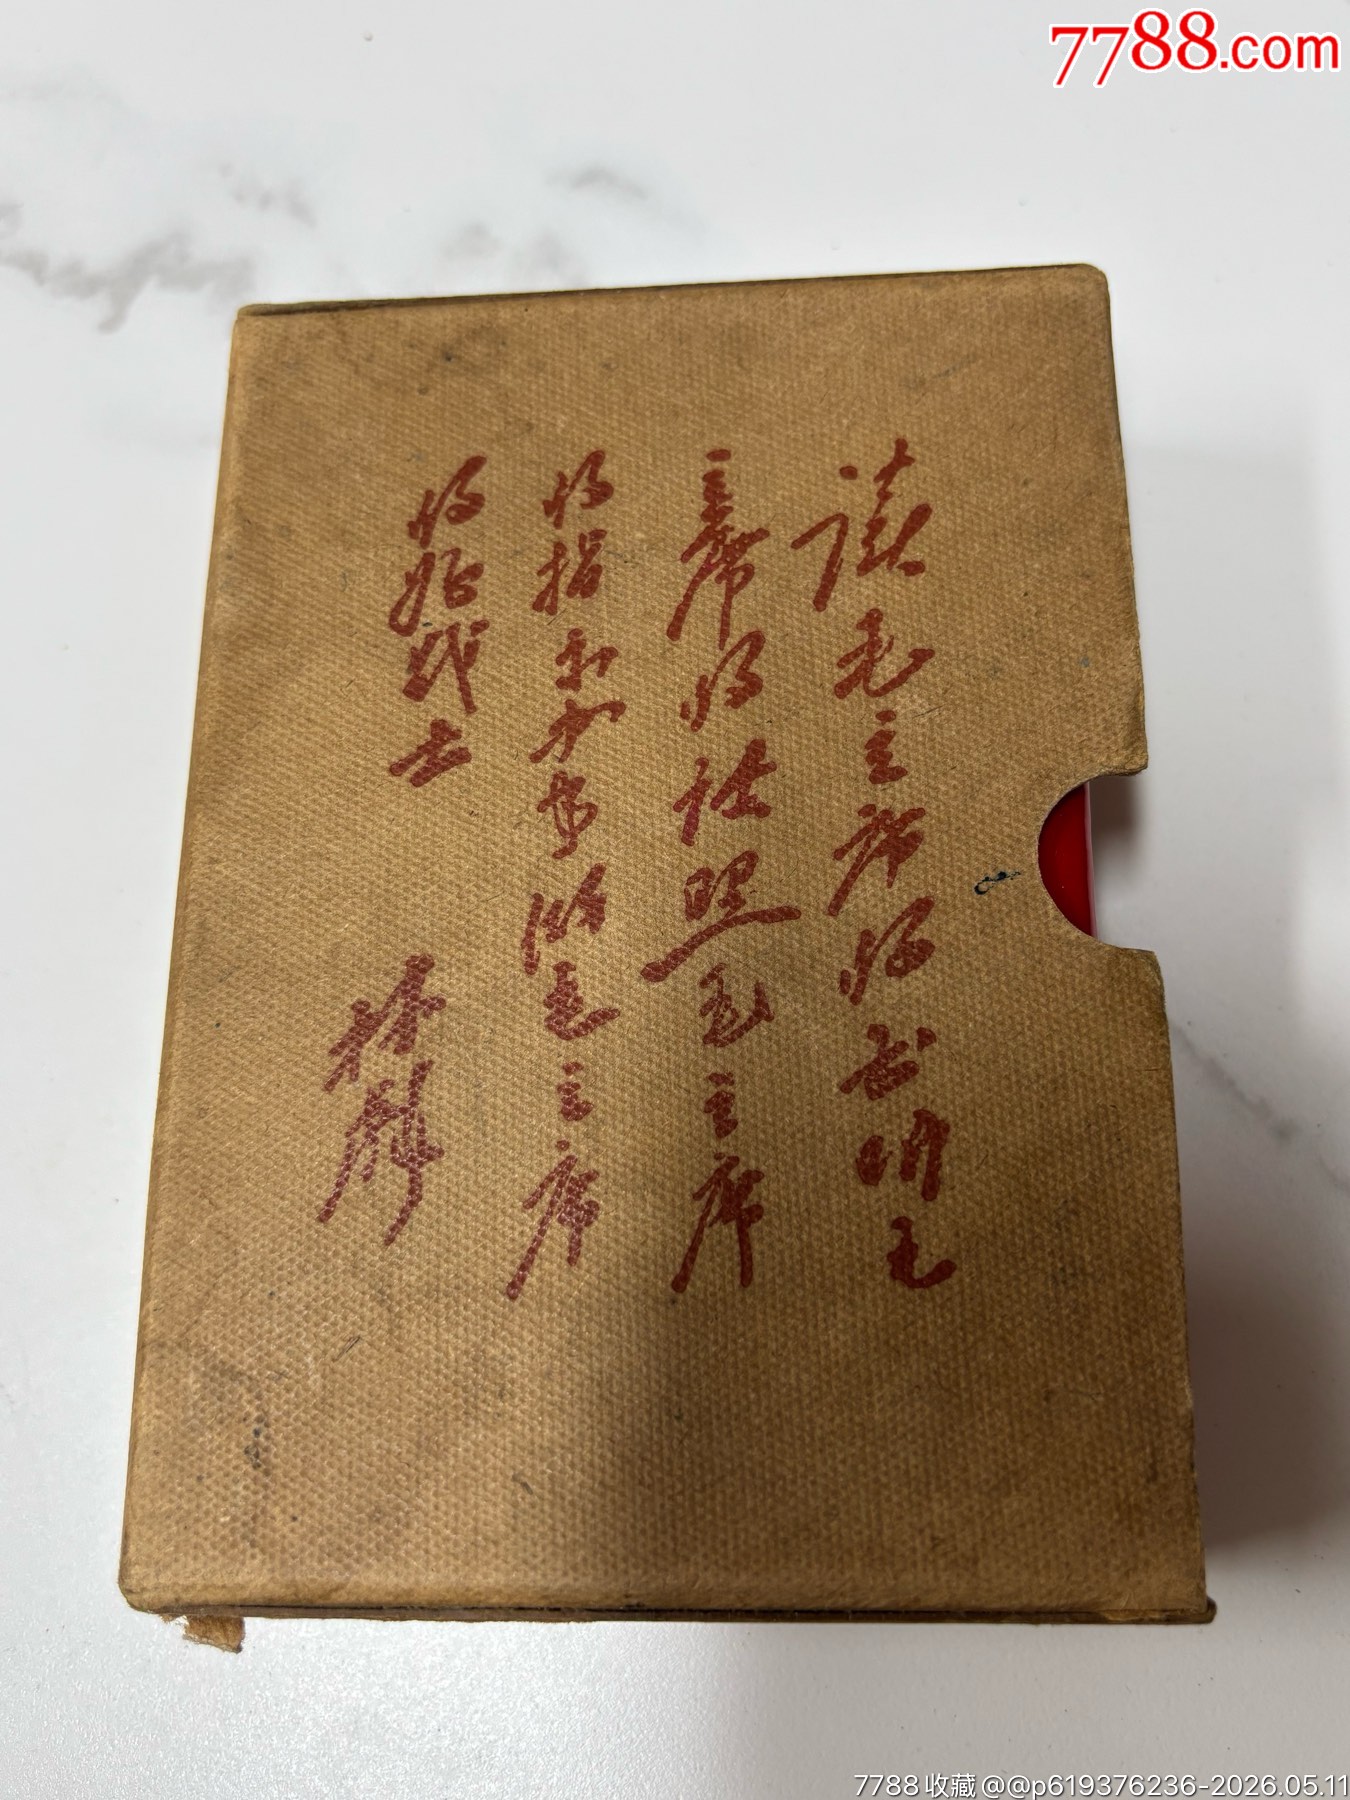 7788.com
读毛主席的书听毛
主席的话照毛主席
的指示办事做毛主席
的好战士
林彪
7788收藏@@p619376236-2026.05.11